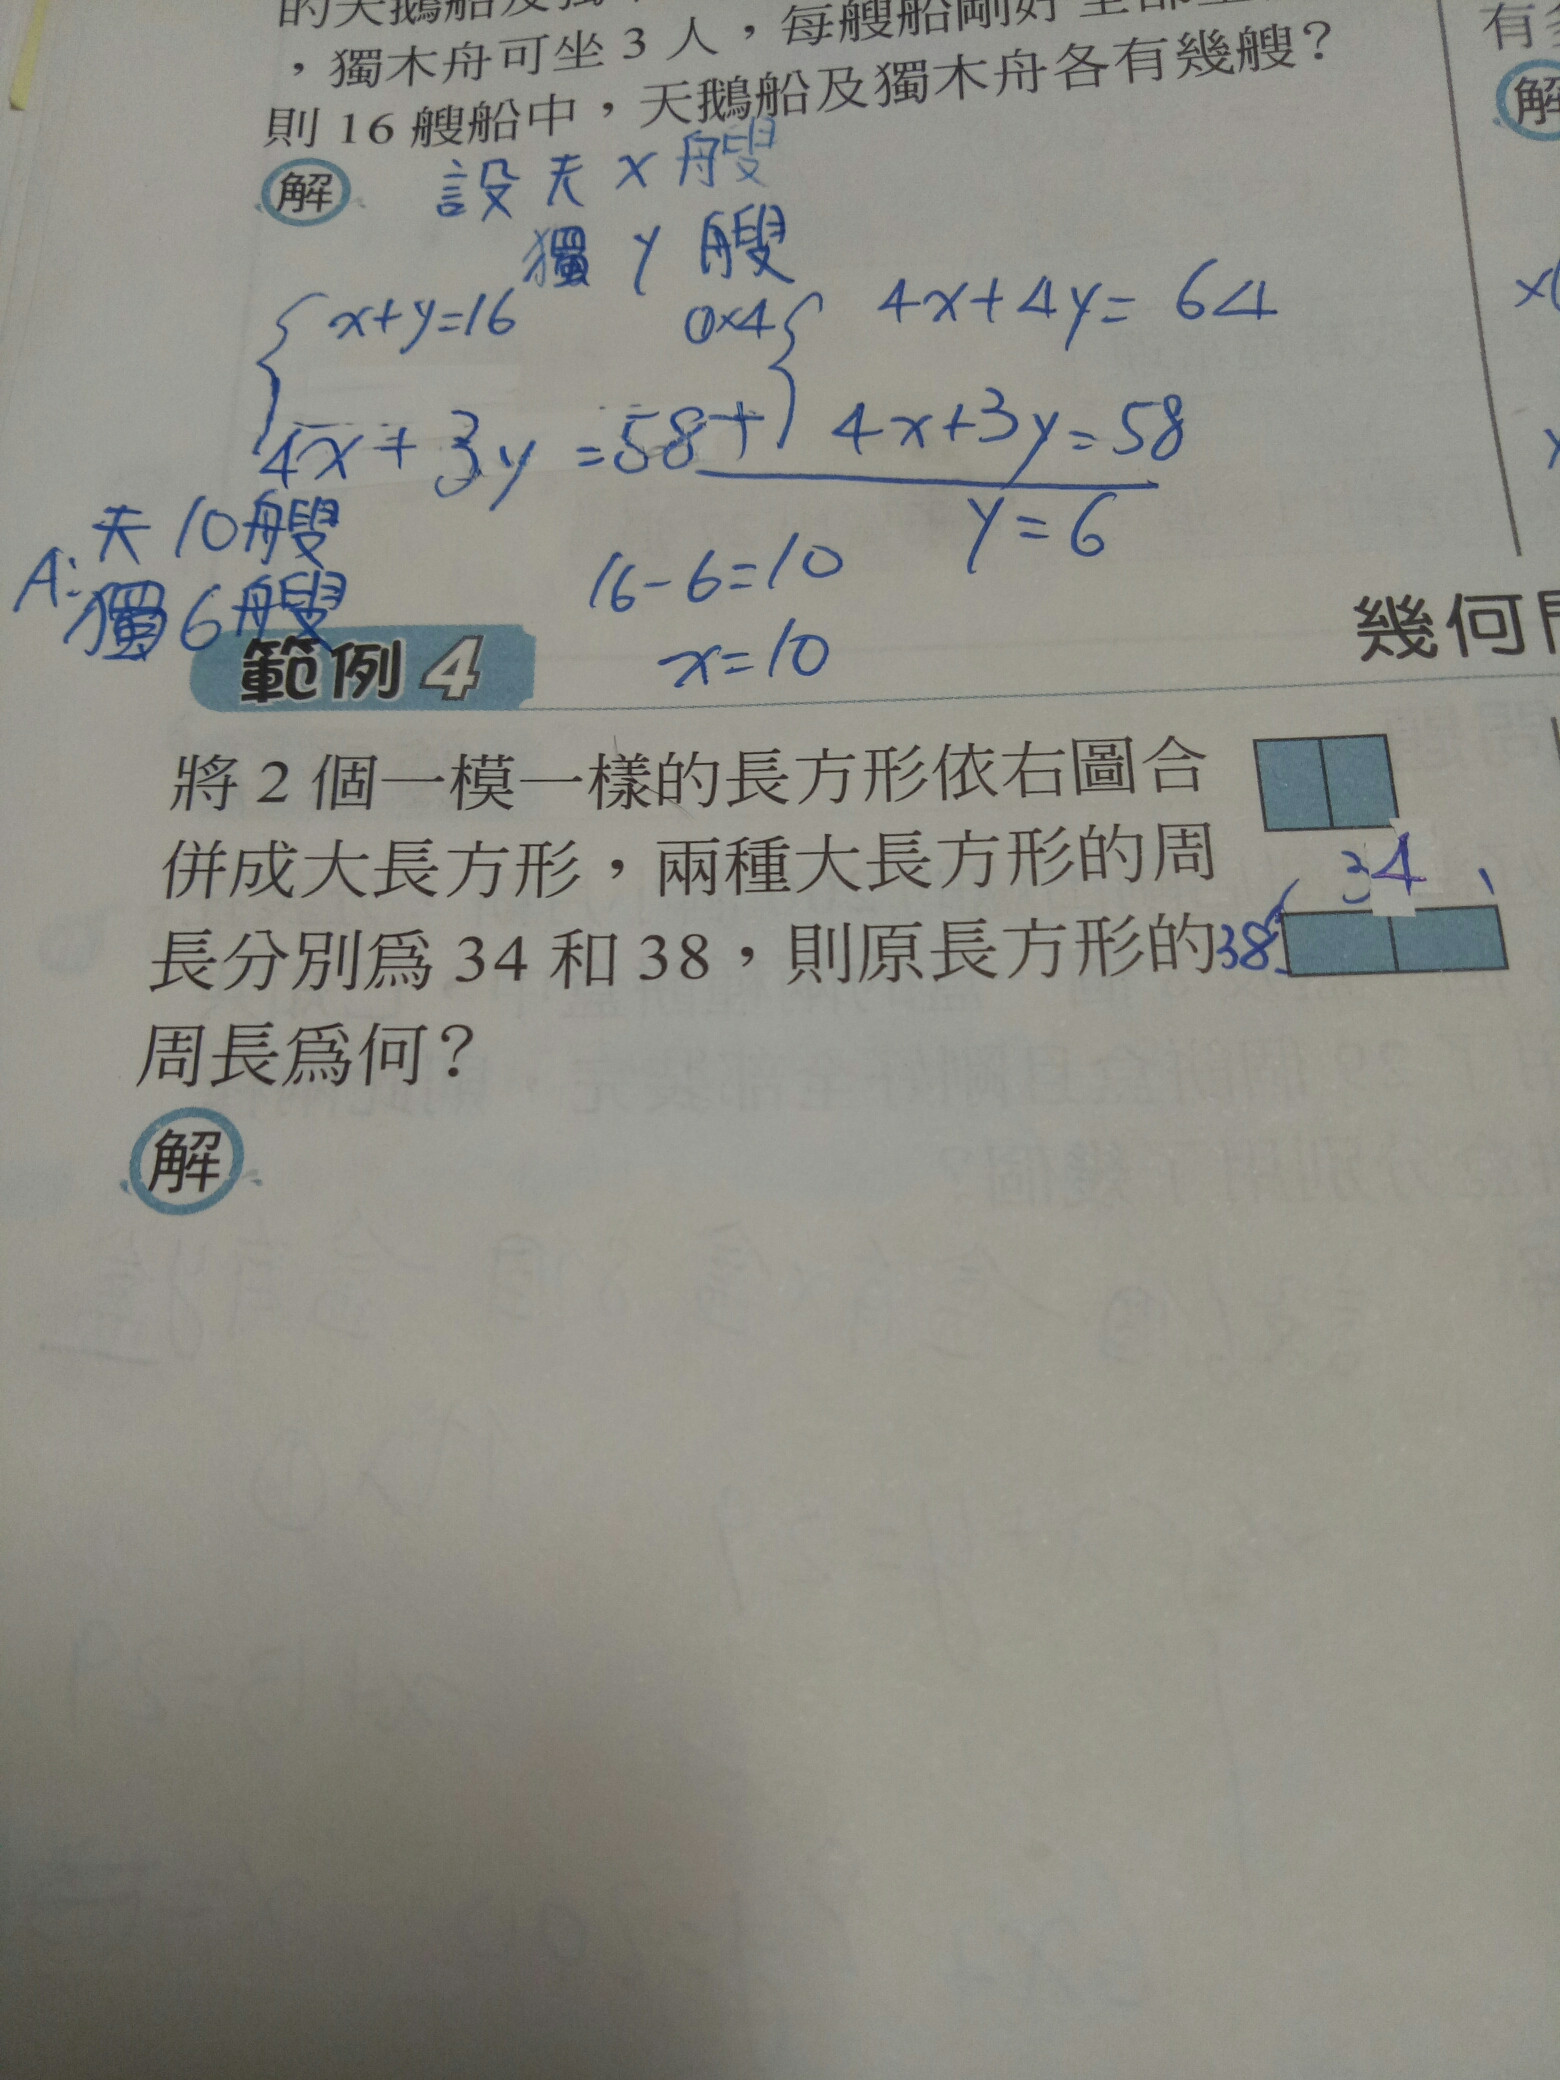 ，獨木舟可坐 3 人，每艘船剛好
則 16 艘船中，天鵝船及獨木舟各有幾艘？
有
解
解
設 天 x 艘
獨 y 艘
x+y=16
①×4
4x+4y=64
4x+3y=58
+
4x+3y=58
y=6
16-6=10
x=10
A: 天 10艘
獨 6艘
範例 4
幾何
將 2 個一模一樣的長方形依右圖合
併成大長方形，兩種大長方形的周
長分別為 34 和 38，則原長方形的
周長為何？
34
38
解